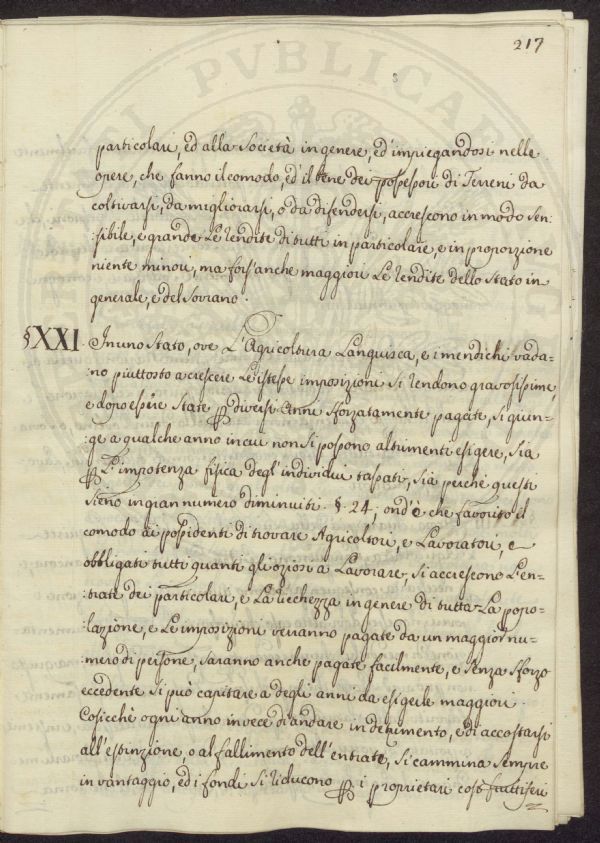 217
particolari, ed alla Società in genere, ed impiegandosi nelle
opere, che fanno il comodo, ed il bene dei possessori di Terreni da
coltivarsi, da migliorarsi, o da difendersi, accrescono in modo sen:
:sibile, e grande Le rendite di tutti in particolare, e in proporzione
niente minori, ma fors'anche maggiori Le rendite dello Stato in
generale, e del Sovrano.
§XXI. In uno Stato, ove L'Agricoltura Languisca, e i mendichi vada=
:no piuttosto a crescere Le istesse imposizioni si rendono gravosissime,
e dopo essere state per diversi Anni sforzatamente pagate, si giun=
:ge a qualche anno in cui non si possono altrimenti esigere, sia
per L'impotenza fisica degl'individui tassati, sia perchè questi
sieno in gran numero diminuiti. §. 24; ond'è che favorito il
comodo ai possidenti di trovare Agricoltori, e Lavoratori, e
obbligati tutti quanti gli oziosi a Lavorare, si accrescono L'en=
:trate dei particolari, e La ricchezza in genere di tutta La popo=
:lazione, e Le imposizioni verranno pagate da un maggior nu=
:mero di persone, saranno anche pagate facilmente, e senza sforzo
eccedente si può capitare a degli anni da esigerle maggiori.
Cosicchè ogni anno invece di andare in detrimento, e di accostarsi
all'estinzione, o al fallimento dell'entrate, si cammina sempre
in vantaggio, ed i fondi si riducono per i proprietari così fruttiferi